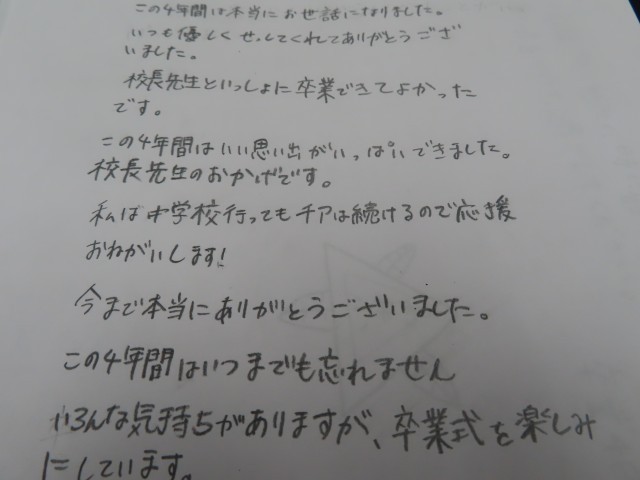 この4年間は本当にお世話になりました。
いつも優しくせっしてくれてありがとうござ
いました。
校長先生といっしょに卒業できてよかった
です。
この4年間はいい思い出がいっぱいできました。
校長先生のおかげです。
私は中学校行ってもチアは続けるので応援
おねがいします!
今まで本当にありがとうございました。
この4年間はいつまでも忘れません
いろんな気持ちがありますが、卒業式を楽しみ
にしています。